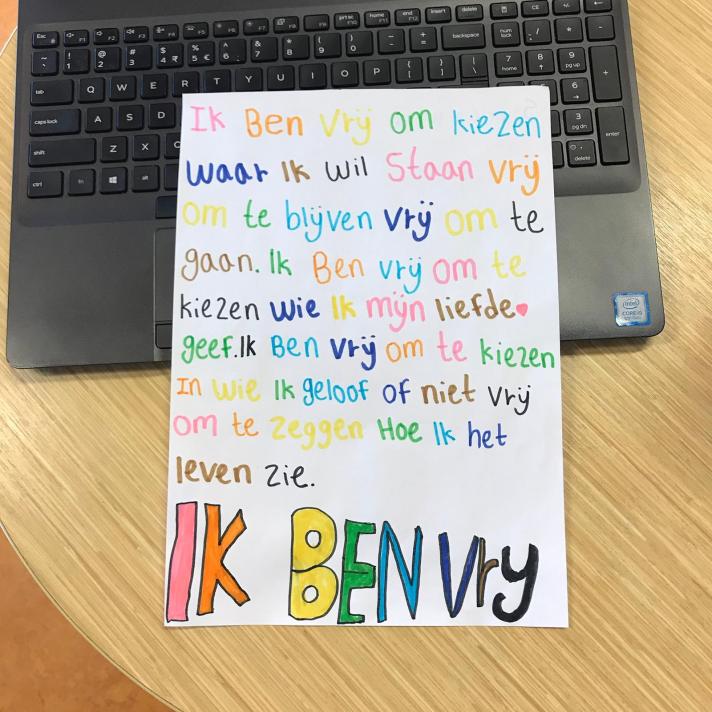 Ik Ben vrij om kiezen
waar Ik wil Staan vrij
om te blijven vrij om te
gaan. Ik Ben vrij om te
kiezen wie Ik mijn liefde♥
geef. Ik Ben vrij om te kiezen
In wie Ik geloof of niet vrij
om te zeggen Hoe Ik het
leven zie.
IK BEN Vry